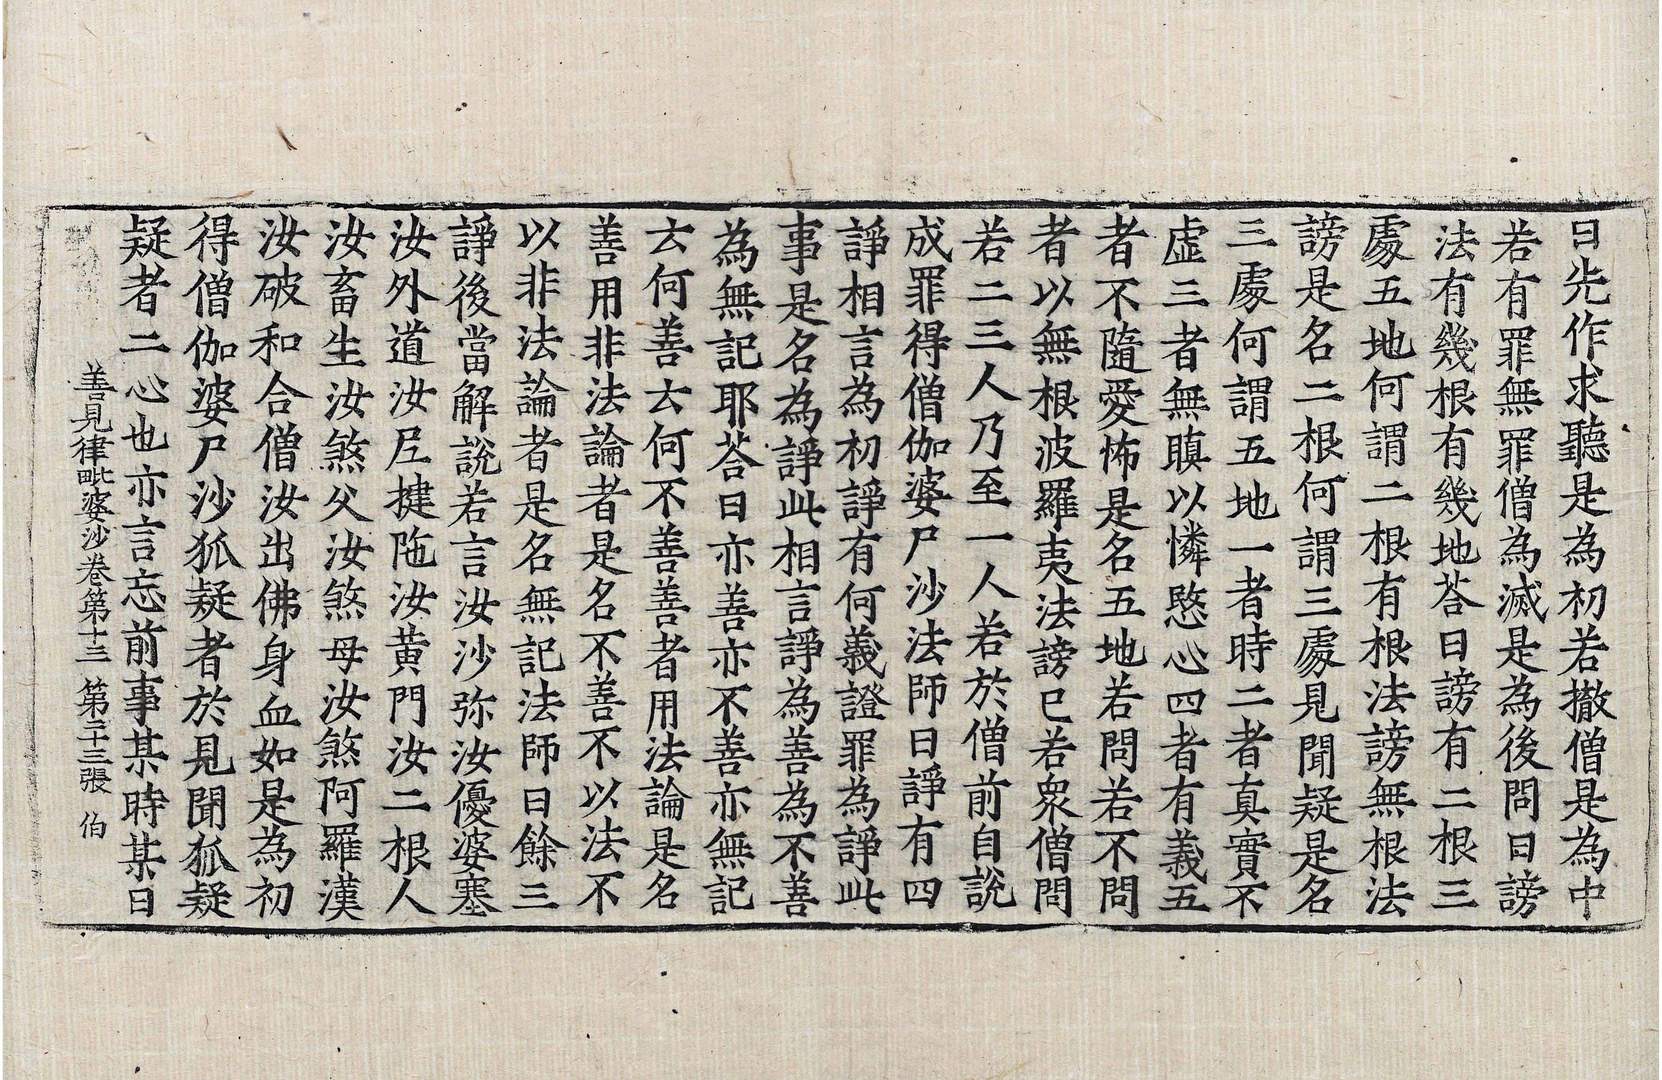 曰先作求聽是為初若撤僧是為中
若有罪無罪僧為滅是為後問曰謗
法有幾根有幾地荅曰謗有二根三
處五地何謂二根有根法謗無根法
謗是名二根何謂三處見聞疑是名
三處何謂五地一者時二者真實不
虛三者無瞋以憐愍心四者有義五
者不隨愛怖是名五地若問若不問
者以無根波羅夷法謗已若衆僧問
若二三人乃至一人若於僧前自說
成罪得僧伽婆尸沙法師曰諍有四
諍相言為初諍有何義證罪為諍此
事是名為諍此相言諍為善為不善
為無記耶荅曰亦善亦不善亦無記
云何善云何不善善者用法論是名
善用非法論者是名不善不以法不
以非法論者是名無記法師曰餘三
諍後當解說若言汝沙弥汝優婆塞
汝外道汝尼揵陁汝黃門汝二根人
汝畜生汝煞父汝煞母汝煞阿羅漢
汝破和合僧汝出佛身血如是為初
得僧伽婆尸沙狐疑者於見聞狐疑
疑者二心也亦言忘前事某時某日
善見律毗婆沙卷第十三 第二十三張 伯